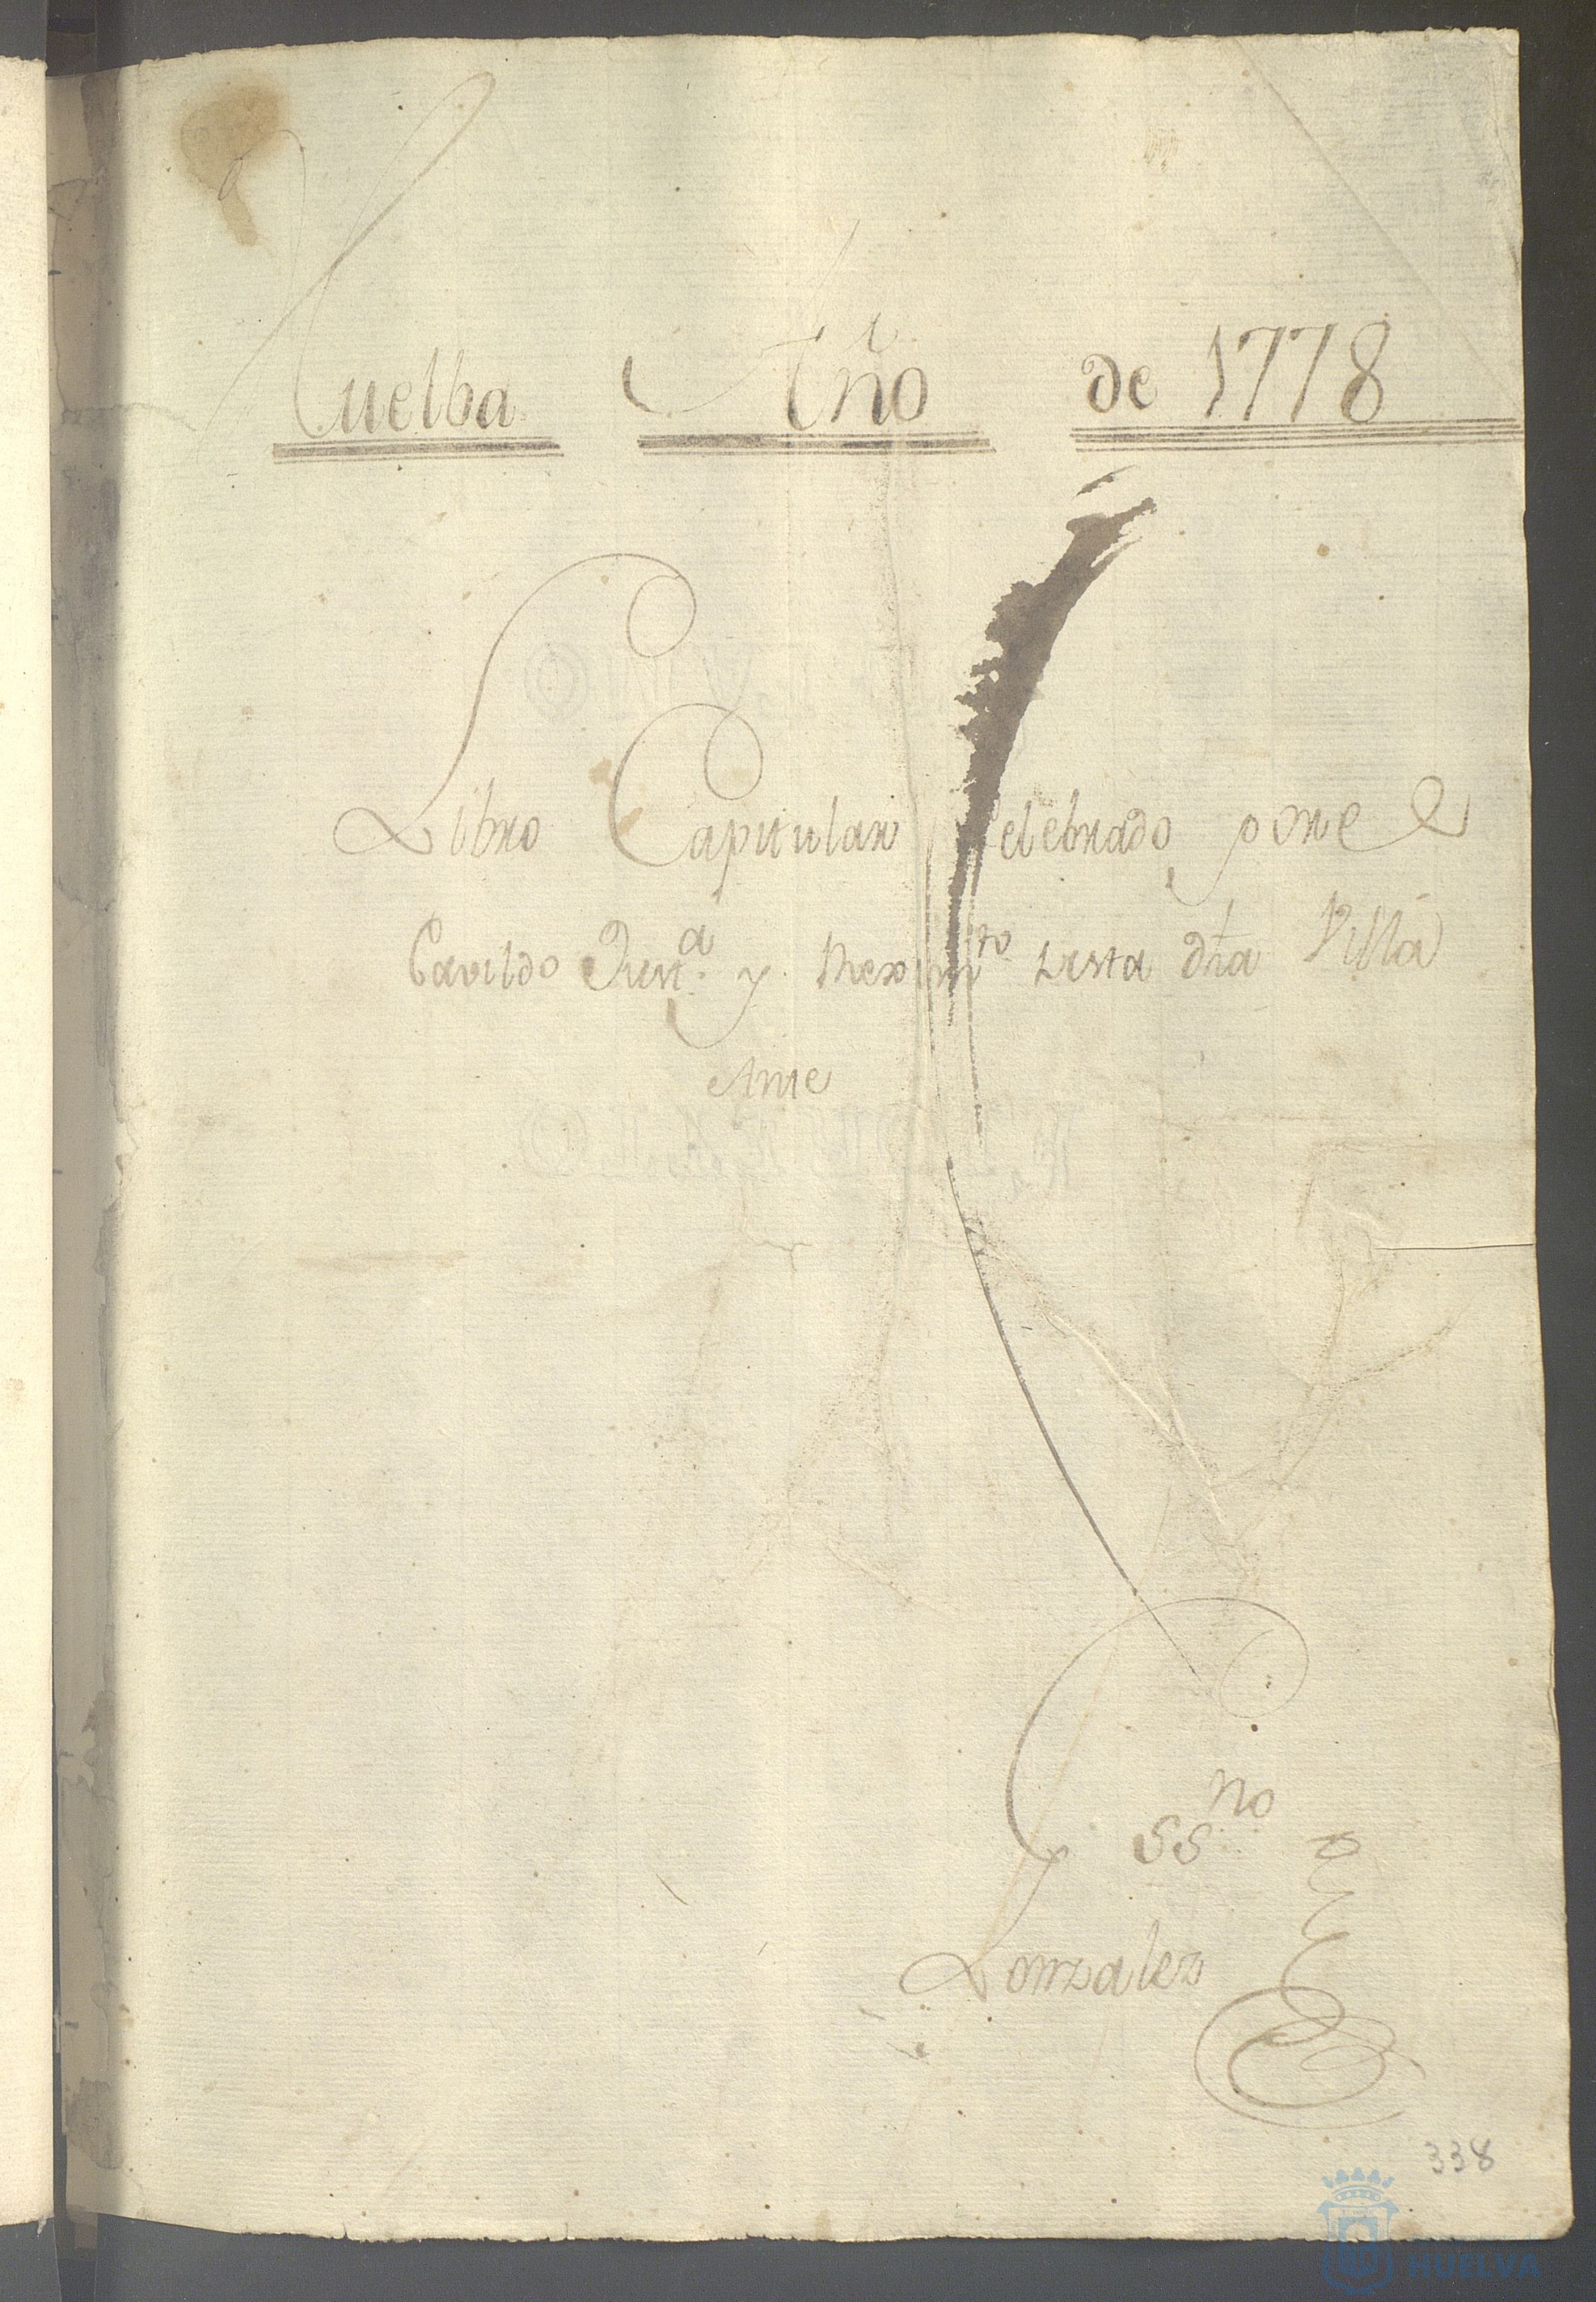 Huelba Año de 1778
Libro Capitular Celebrado por el
Cavildo Just.ª y Reximto desta dha Villa
Ante
SSno
Gonzalez
338
HUELVA